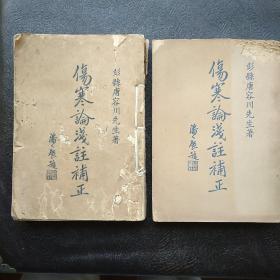 彭縣唐容川先生著
傷寒論淺註補正
彭縣唐容川先生著
傷寒論淺註補正